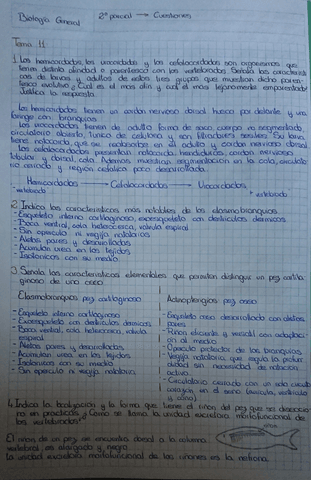 Biología General 2º parcial → Cuestiones
Tema 11
1. Los hemicordados, los urocordados y los cefalocordados son organismos que
tienen distinta afinidad o parentesco con los vertebrados. Señala las características
de larvas y adultos de estos tres grupos que muestran dicho paren-
tesco evolutivo ¿Cuál es el más afín y cuál el más lejanamente emparentado?
Justifica la respuesta.
Los hemicordados tienen un cordón nervioso dorsal hueco por delante y una
faringe con branquias
Los urocordados tienen de adulto forma de saco, cuerpo no segmentado,
circulatorio abierto, túnica de celulosa y son filtradores sésiles. Su larva
tiene notocorda, que se en adulto y cordón nervioso dorsal
Los cefalocordados presentan notocorda, hendiduras, cordón nervioso
tubular y dorsal, cola. Además muestran segmentación en la cola, circulato
rio cerrado y región cefálica poco desarrollada.
Hemicordados → Cefalocordados → Urocordados
- vertebrado + vertebrado
2. Indica las características más notables de los elasmobranquios.
- Esqueleto interno cartilaginoso, exoesqueleto con dentículos dérmicos
- Boca ventral, cola heterocerca, válvula espiral
- Sin opérculo ni vejiga natatoria
- Aletas pares y desarrolladas
- Acumulan urea en los tejidos
- Isotónicos con su medio
3. Señala las características elementales que permitan distinguir un pez cartila-
ginoso de uno óseo.
Elasmobranquios pez cartilaginoso
- Esqueleto interno cartilaginoso
- Exoesqueleto con dentículos dérmicos
- Boca ventral, cola heterocerca, válvula
espiral
- Aletas pares y desarrolladas
- Acumulan urea en los tejidos
- Isotónicos con su medio
- Sin opérculo ni vejiga natatoria
Actinopterigios pez óseo
- Esqueleto óseo desarrollado con aletas
pares
- Riñón eficiente y versátil con adaptación
al medio
- Opérculo protector de las branquias
- Vejiga natatoria, que regula la profun
didad sin necesidad de natación
activa.
- Circulatorio cerrado con un solo circuito
corazón en serie (aurícula, ventrículo
y cono)
4. Indica la localización y la forma que tiene el riñón del pez que se diseccio-
nó en prácticas ¿Cómo se llama la unidad excretora morfofuncional de
los vertebrados?
El riñón de un pez se encuentra dorsal a la columna
vertebral, es alargado y negro.
La unidad excretora morfofuncional de los riñones es la nefrona.